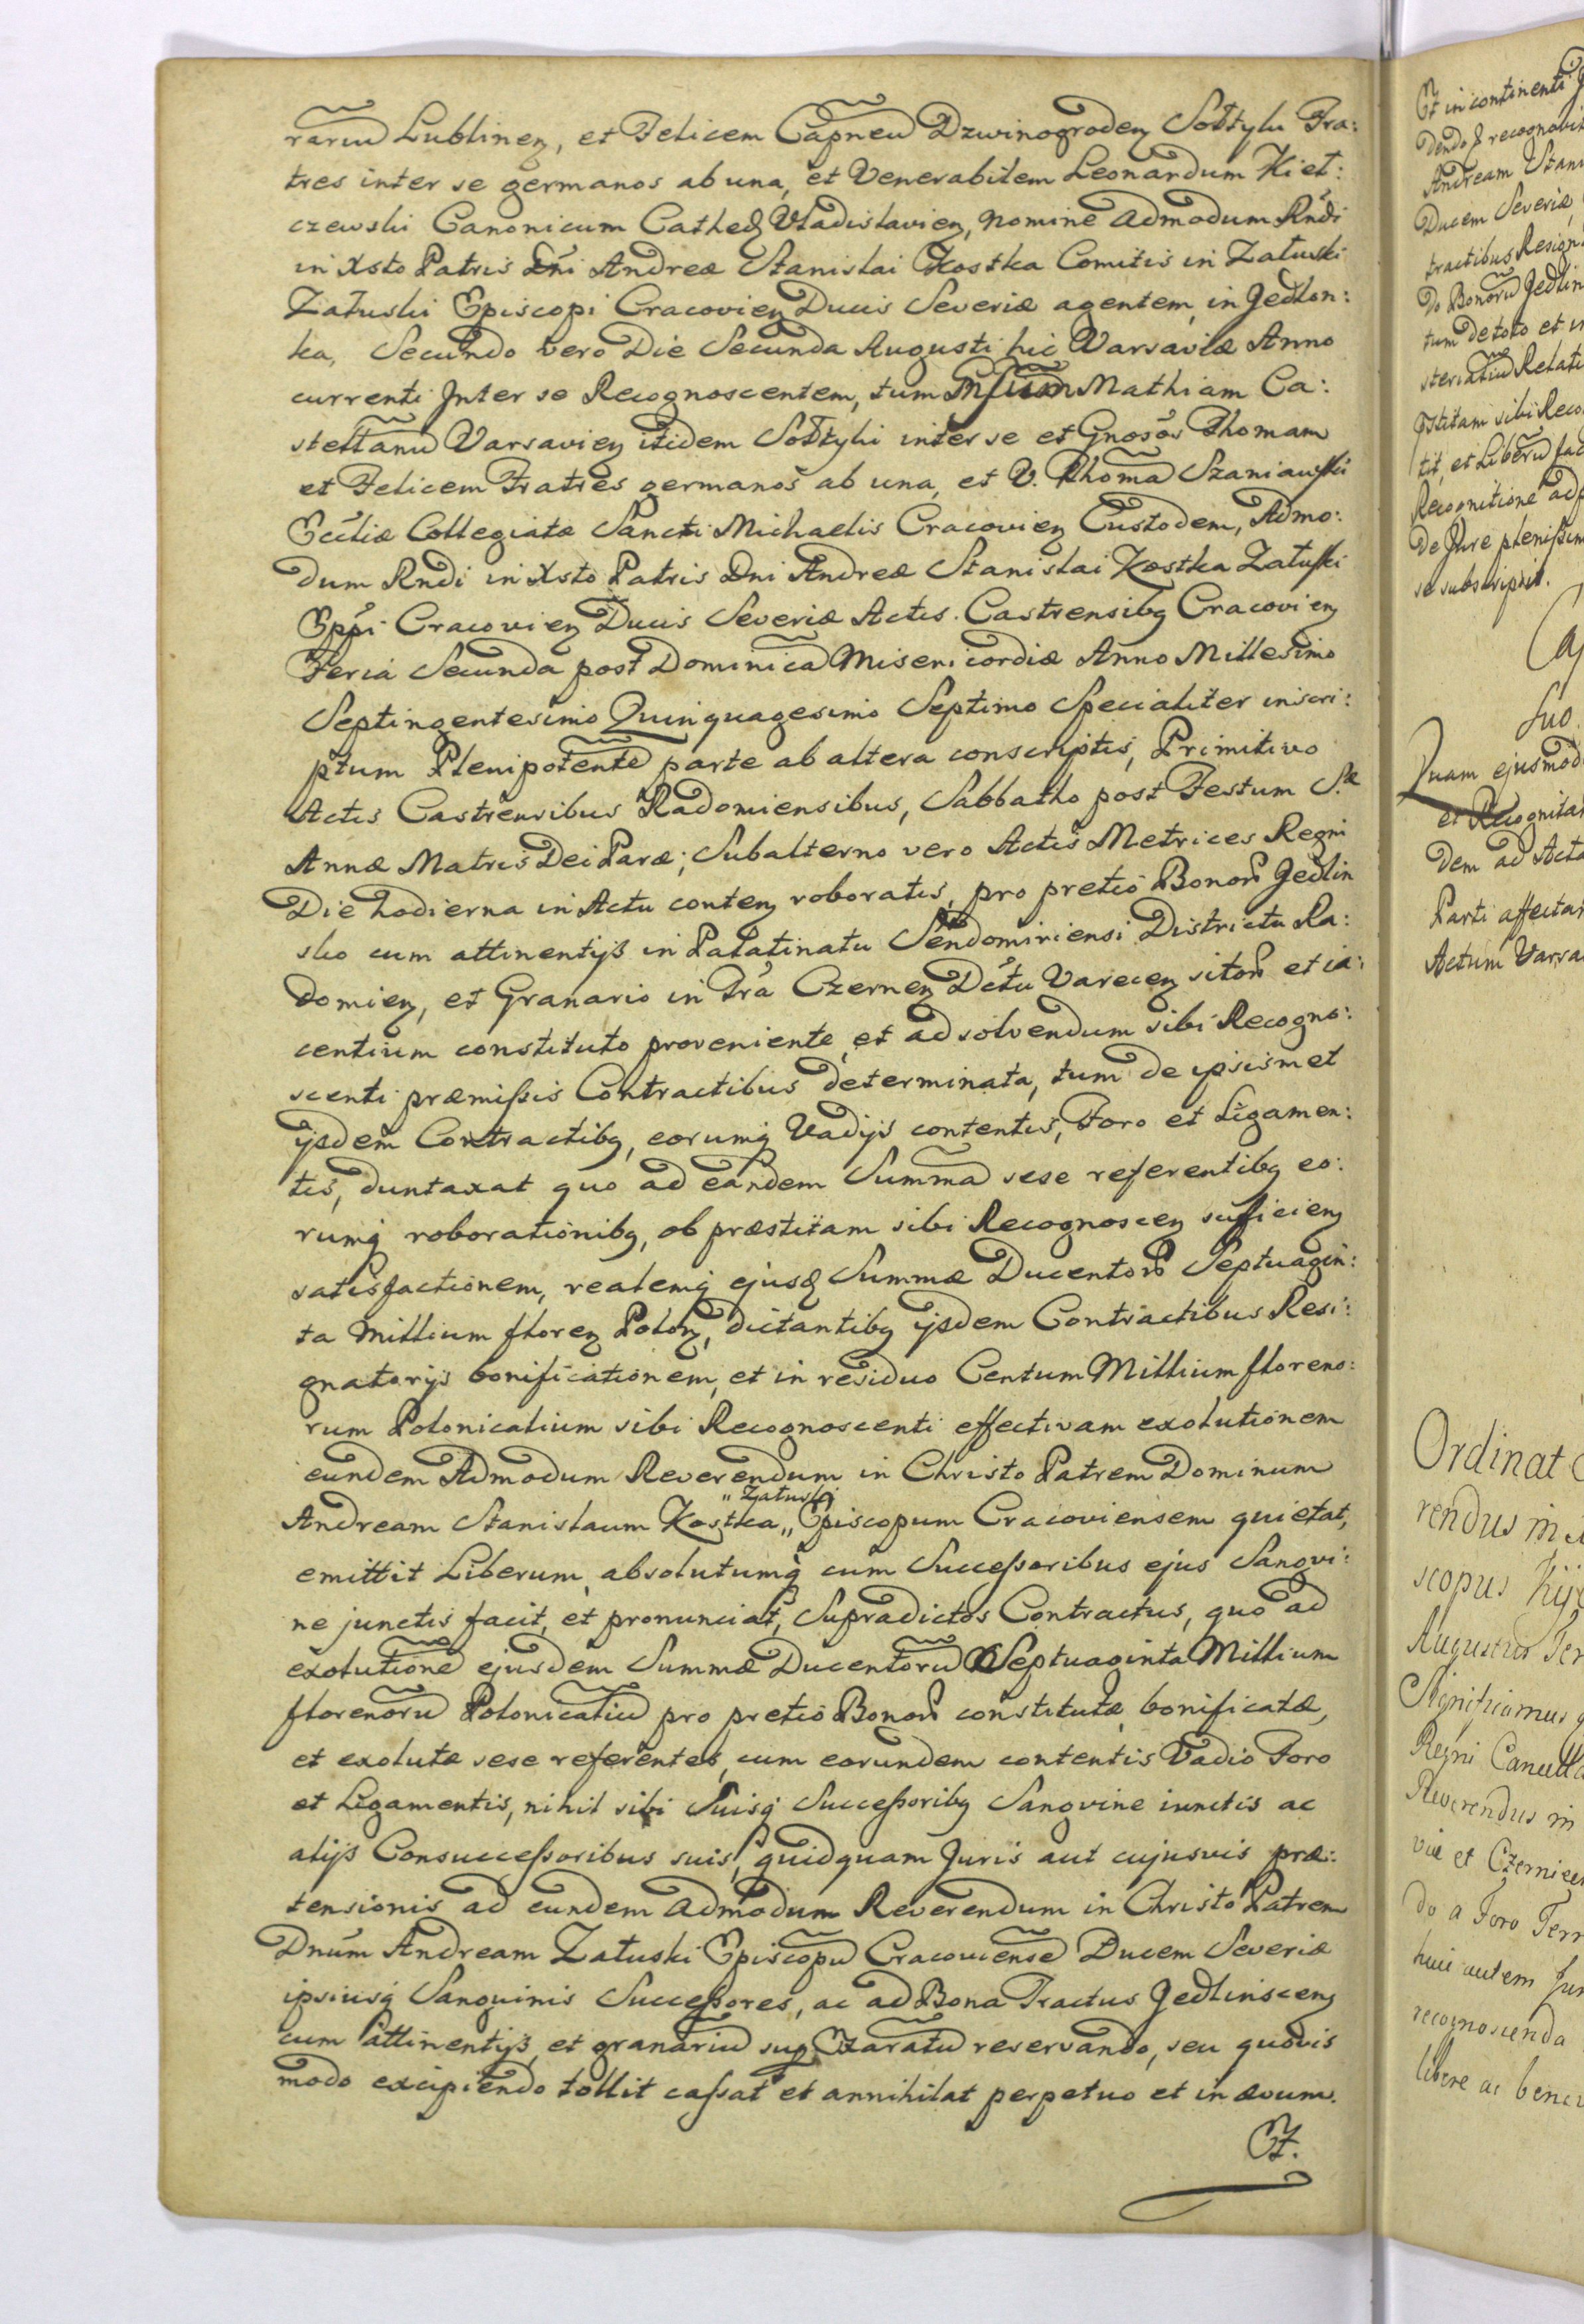 rariu Lublineñ, et Felicem Capneu Dzwinogrodeñ Sołtyki Fra:
tres inter se germanos ab una, et Venerabilem Leonardum Kieł:
czewski Canonicum Cathed Vladislavieñ, nomine admodum Rńdi
in Xsto Patris Dńi Andreæ Stanislai Kostka Comitis in Załuski
Załuski Episcopi Cracovieñ Ducis Severiæ agentem, in Jedlon:
ka, Secundo vero Die Secunda Augusti hic Varsaviæ Anno
currenti Inter se Recognoscentem, tum Mathiam Ca:
stellanu Varsavieñ itidem Sołtyki inter se et Gnosos Thomam
et Felicem Fratres germanos ab una, et V. Thoma Szaniawski
Eccliæ Collegiatæ Sancti Michaelis Cracovieñ Custodem, Admo:
dum Rndi in Xsto Patris Dni Andreæ Stanislai Kostka Załuski
Eppi Cracovieñ Ducis Severiæ Actis Castrensibq Cracovieñ
Feria Secunda post Dominica Misericordiæ Anno Millesimo
Septingentesimo Quinquagesimo Septimo Specialiter inscri:
ptum Plenipotente parte ab altera conscriptis, Primitivo
Actis Castrensibus Radomiensibus, Sabbatho post Festum S.æ
Annæ Matris Dei Paræ; Subalterno vero Actis Metrices Regni
Die hodierna in Actu conteñ roboratis, pro pretio Bonorũ Jedlin
sko cum attinentijs in Palatinatu Sendomiriensi Districtu Ra:
domieñ, et Granario in Tra Czerneñ Dctu Vareceñ sitorũ et ia:
centium constituto proveniente, et ad solvendum sibi Recogno:
scenti præmissis Contractibus determinata, tum de ipsismet
ijsdem Contractibq, eorumq Vadijs contentis, Foro et Ligamen:
tis, duntaxat quo ad eandem Summa sese referentibq eo:
rumq roborationibq, ob præstitam sibi Recognosceñ sufficieñ
satisfactionem, realemq ejusd Summæ Ducentorũ Septuagin:
ta Millium floreñ Poloñ, dictantibq ijsdem Contractibus Resi:
gnatorijs bonificationem, et in residuo Centum Millium floreno:
rum Polonicalium sibi Recognoscenti effectivam exolutionem
eundem Admodum Reverendum in Christo Patrem Dominum
Andream Stanislaum Kostka „ Załuski „ Episcopum Cracoviensem quietat,
emittit Liberum, absolutumq cum Successoribus ejus Sangvi:
ne junctis facit, et pronunciat, Supradictos Contractus, quo ad
exolutione ejusdem Summæ Ducentoru Septuaginta Millium
florenoru Polonicaliu pro pretio Bonorũ constitutæ, bonificatæ,
et exolutæ sese referentes, cum eorundem contentis Vadio Foro
et Ligamentis, nihil sibi Suisq Successoribq Sangvine iunctis ac
alijs Consuccessoribus suis, quidquam Juris aut cujusvis præ:
tensionis ad eundem admodum Reverendum in Christo Patrem
Dnum Andream Załuski Episcopu Cracoviense Ducem Severiæ
ipsiusq Sanguinis Successores, ac ad Bona Tractus Jedlinsceñ
cum attinentijs, et granariu sup reservando, seu quovis
modo excipiendo tollit cassat et annihilat perpetuo et in ævum.
Et.
Et in continenti
dendo recognovit
Andream Stani
Ducem Severiæ
tractibus Resign
do Bonoru Jedlin
tum de toto et in
Relati
sibi Reco
tit, et Liberu fac
Recognitione ad
de Jure plenissim
se subscripsit.
Ca
Suo
Quam ejusmodi
et Recognita
dem ad Acta
Parti affecta
Actum Varsa
Ordinat
rendus in
scopus Kij
Augustus Ter
Significamus
Regni Cancella
Reverendus in
viæ et Czernie
do a Foro Terr
huic autem Jur
recognoscenda
libere ac bene